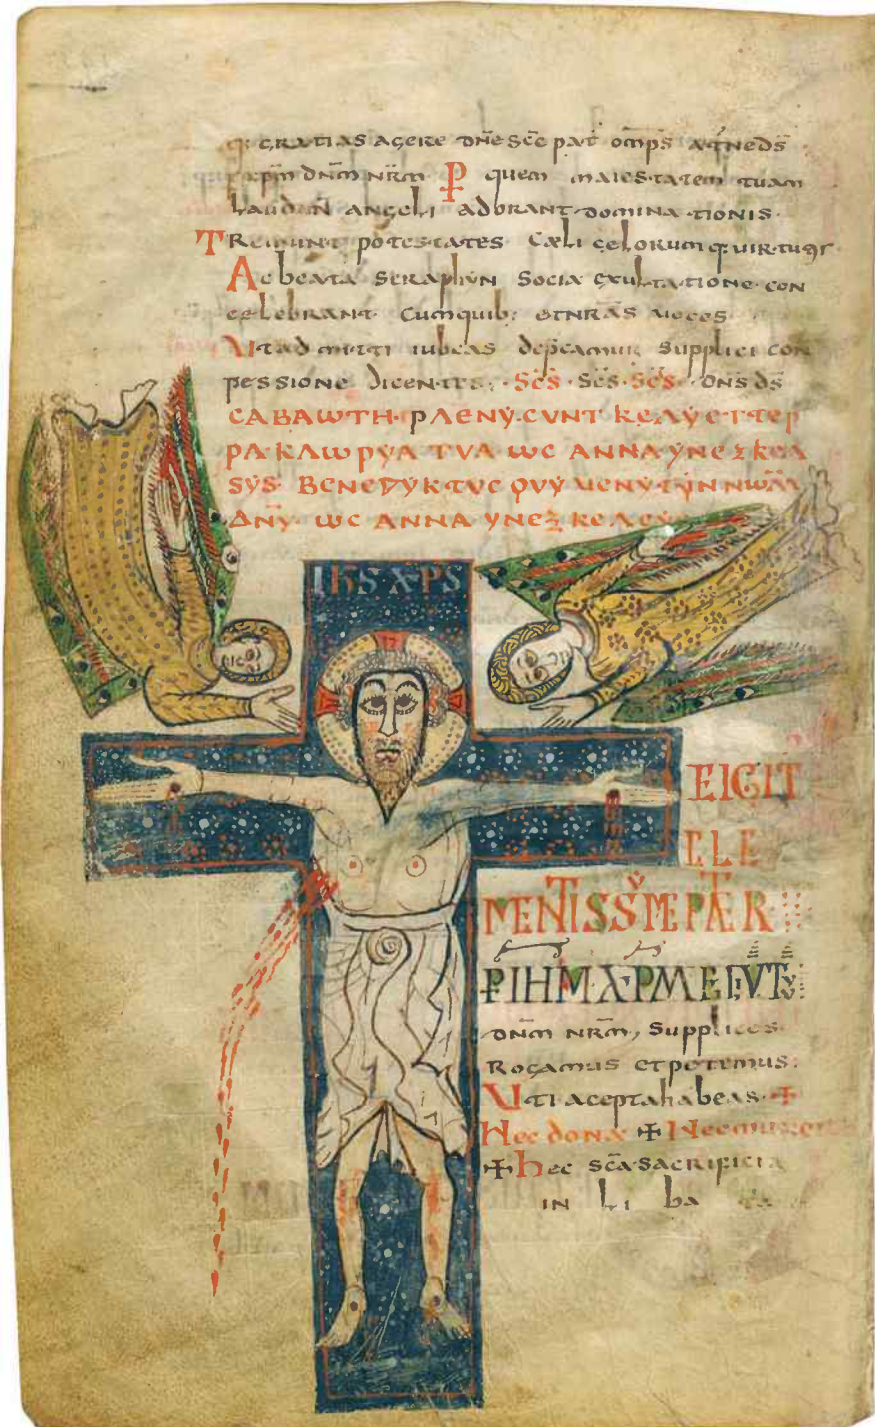 GRATIAS AGERE DÑE SCE PAT OMPS
XPM DNM NRM P QUEM MAIESTATEM TUAM
LAUDANT ANGELI ADORANT DOMINATIONIS
TREMUNT POTESTATES CÆLI CELORUMQ UIRTUTES
AC BEATA SERAPHYN SOCIA EXULTATIONE CON
CELEBRANT CUM QUIB: ET NRAS UOCES
UT ADMITTI IUBEAS DEPCAMUR SUPPLICI CON
FESSIONE DICENTES: SCS SCS SCS DNS DS
CABAωTH PΛENY CVNT KEΛY ETTEP
PA KΛωPYA TVA ωC ANNA YNEΞKEΛ
SYS BENEDYKTVC QVY UENYT YN NωM
ΔNY ωC ANNA YNEΞKEΛ
IHS XPS
EIGIT
CLE
MENTISSME PATER
P IHM XPM
DNM NRM, SUPPLICES
ROGAMUS ET PETEMUS:
UTI ACEPTA HABEAS ✠
HEC DONA ✠ HEC
✠ HEC SCA SACRIFICIA
IN LI BA